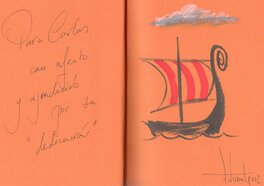 Para Carlos
con afecto
y agradecido
por su
"dedicación"